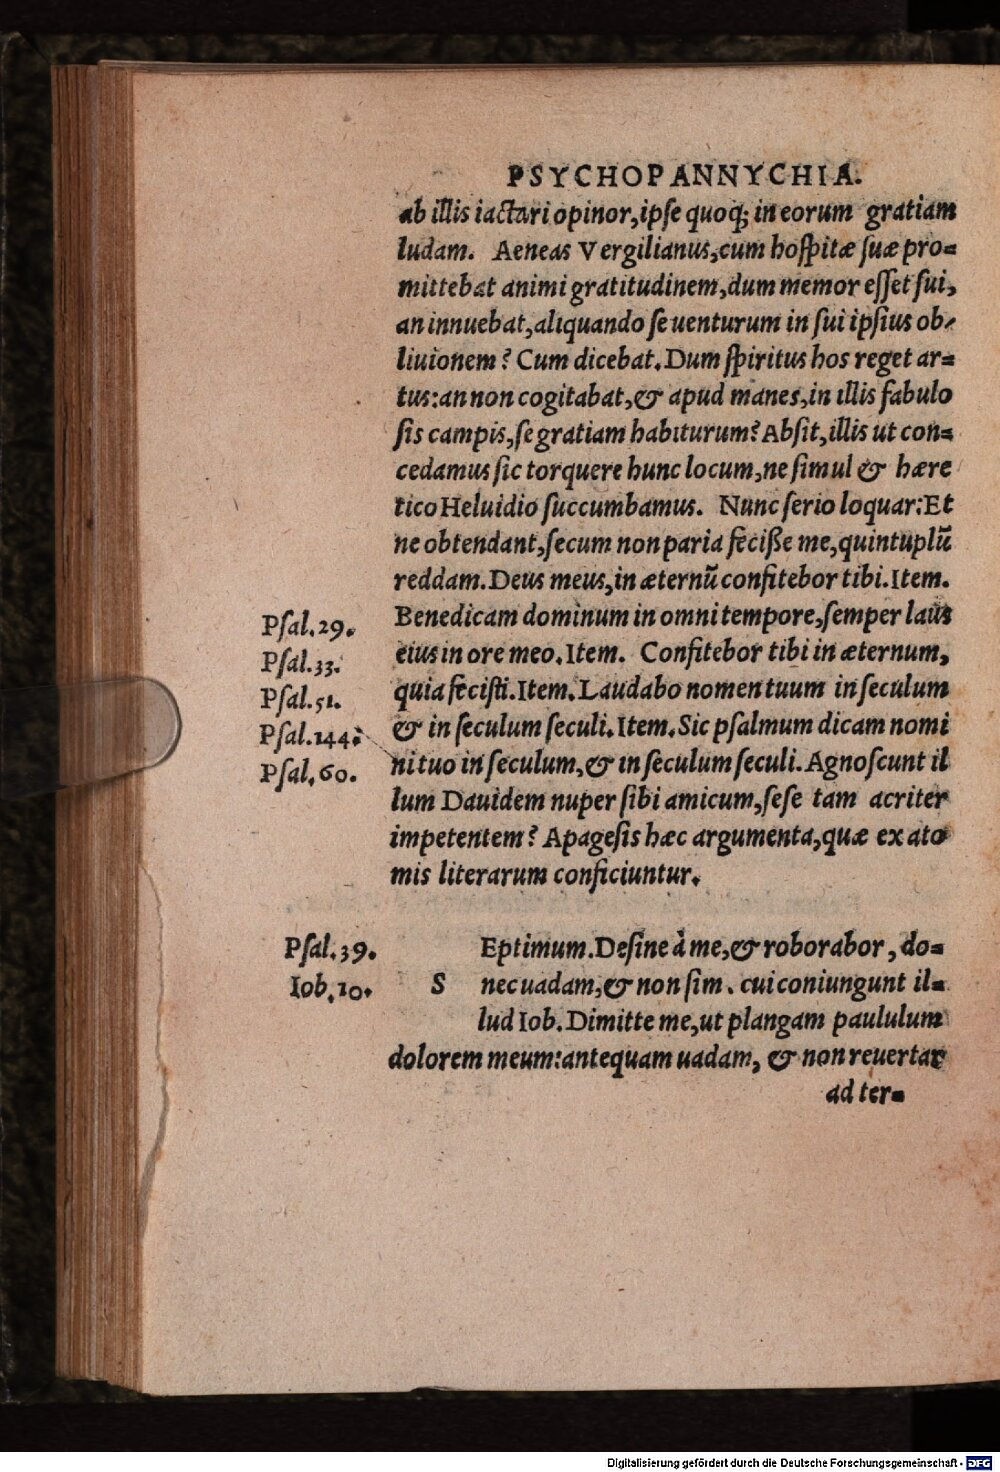 PSYCHOPANNYCHIA.
ab illis iactari opinor, ipſe quoq; in eorum gratiam
ludam. Aeneas Vergilianus, cum hoſpitæ ſuæ pro-
mittebat animi gratitudinem, dum memor eſſet ſui,
an innuebat, aliquando ſe uenturum in ſui ipſius ob-
liuionem? Cum dicebat. Dum ſpiritus hos reget ar-
tus: an non cogitabat, & apud manes, in illis fabulo
ſis campis, ſe gratiam habiturum? Abſit, illis ut con-
cedamus ſic torquere hunc locum, ne ſimul & hære
tico Heluidio ſuccumbamus. Nunc ſerio loquar: Et
ne obtendant, ſecum non paria feciße me, quintuplũ
reddam. Deus meus, in æternũ confitebor tibi. Item.
Psal. 29. Benedicam dominum in omni tempore, ſemper laus
Pſal. 33. eius in ore meo. Item. Confitebor tibi in æternum,
Pſal. 51. quia feciſti. Item. Laudabo nomen tuum in ſeculum
Pſal. 144. & in ſeculum ſeculi. Item. Sic pſalmum dicam nomi
Pſal. 60. ni tuo in ſeculum, & in ſeculum ſeculi. Agnoſcunt il
lum Dauidem nuper ſibi amicum, ſeſe tam acriter
impetentem? Apageſis hæc argumenta, quæ ex ato
mis literarum conficiuntur.
Pſal. 39. Eptimum. Deſine à me, & roborabor, do-
Iob. 10. S nec uadam, & non ſim. cui coniungunt il-
lud Iob. Dimitte me, ut plangam paululum
dolorem meum: antequam uadam, & non reuertar
ad ter-
Digitalisierung gefördert durch die Deutsche Forschungsgemeinschaft - DFG